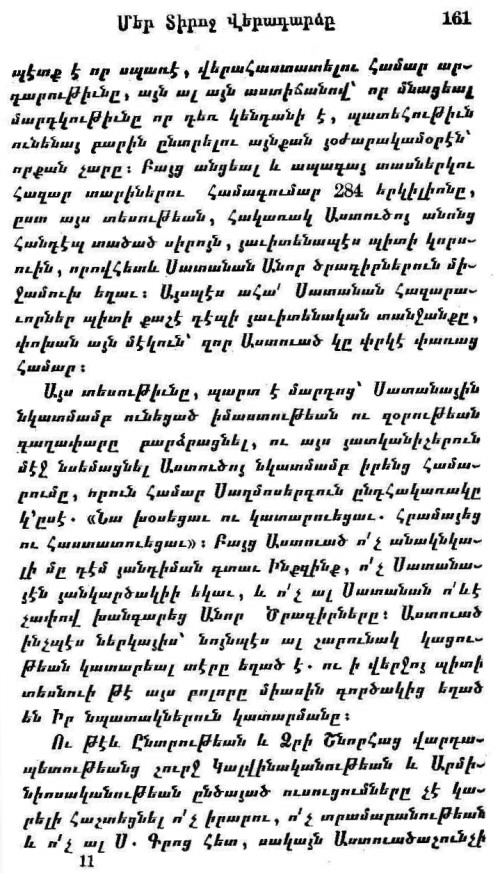 Մեր Տիրոջ Վերադարձը 161
պէտք է որ սպառէ, վերահաստատելու համար ար-
դարութիւնը, այն ալ այն աստիճանով՝ որ մնացեալ
մարդկութիւնը որ դեռ կենդանի է, պատեհութիւն
ունենայ բարին ընտրելու այնքան յօժարակամօրէն՝
որքան չարը։ Բայց անցեալ և ապագայ տասներկու
հազար տարիներու համագումար 284 երկիլիոնը,
ըստ այս տեսութեան, հակառակ Աստուծոյ անոնց
հանդէպ տածած սիրոյն, յաւիտենապէս պիտի կորս-
ուին, որովհետև Սատանան Անոր ծրագիրներուն մի-
ջամուխ եղաւ։ Այսպէս ահա՛ Սատանան հազարա-
ւորներ պիտի քաշէ դէպի յաւիտենական տանջանքը,
փոխան այն մէկուն՝ զոր Աստուած կը փրկէ փառաց
համար։
Այս տեսութիւնը, պարտ է մարդոց՝ Սատանային
նկատմամբ ունեցած իմաստութեան ու զօրութեան
գաղափարը բարձրացնել, ու այս յատկանիշերուն
մէջ նսեմացնել Աստուծոյ նկատմամբ իրենց համա-
րումը, որուն համար Սաղմոսերգուն ընդհակառակը
կ՚ըսէ. «Նա խօսեցաւ ու կատարուեցաւ. Հրամայեց
ու հաստատուեցաւ»։ Բայց Աստուած ո՛չ անակնկա-
լի մը դէմ յանդիման գտաւ Ինքզինք, ո՛չ Սատանա-
յէն յանկարծակիի եկաւ, և ո՛չ ալ Սատանան ո՛ևէ
չափով խանգարեց Անոր Ծրագիրները։ Աստուած
ինչպէս ներկայիս՝ նոյնպէս ալ շարունակ կացու-
թեան կատարեալ տէրը եղած է. ու ի վերջոյ պիտի
տեսնուի թէ այս բոլորը միասին գործակից եղած
են Իր նպատակներուն կատարմանը։
Ու թէև Ընտրութեան և Ձրի Շնորհաց վարդա-
պետութեանց շուրջ Կալվինականութեան և Արմի-
նիոսականութեան ընծայած ուսուցումները չէ կա-
րելի հաշտեցնել ո՛չ իրարու, ո՛չ տրամարանութեան
և ո՛չ ալ Ս. Գրոց հետ, սակայն Աստուածաշունչի
11